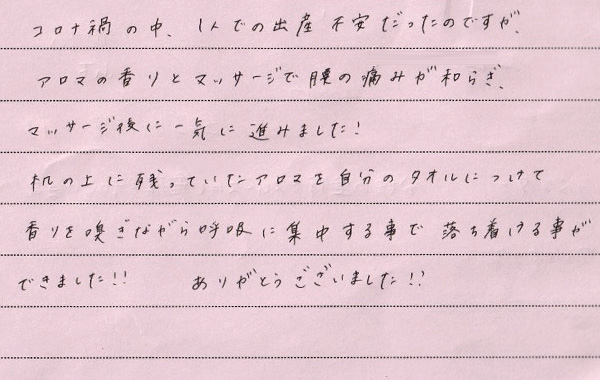 コロナ禍の中、1人での出産 不安だったのですが、
アロマの香りとマッサージで腰の痛みが和らぎ、
マッサージ後に一気に進みました!
机の上に残っていたアロマを自分のタオルにつけて
香りを嗅ぎながら呼吸に集中する事で 落ち着ける事が
できました!! ありがとうございました!!